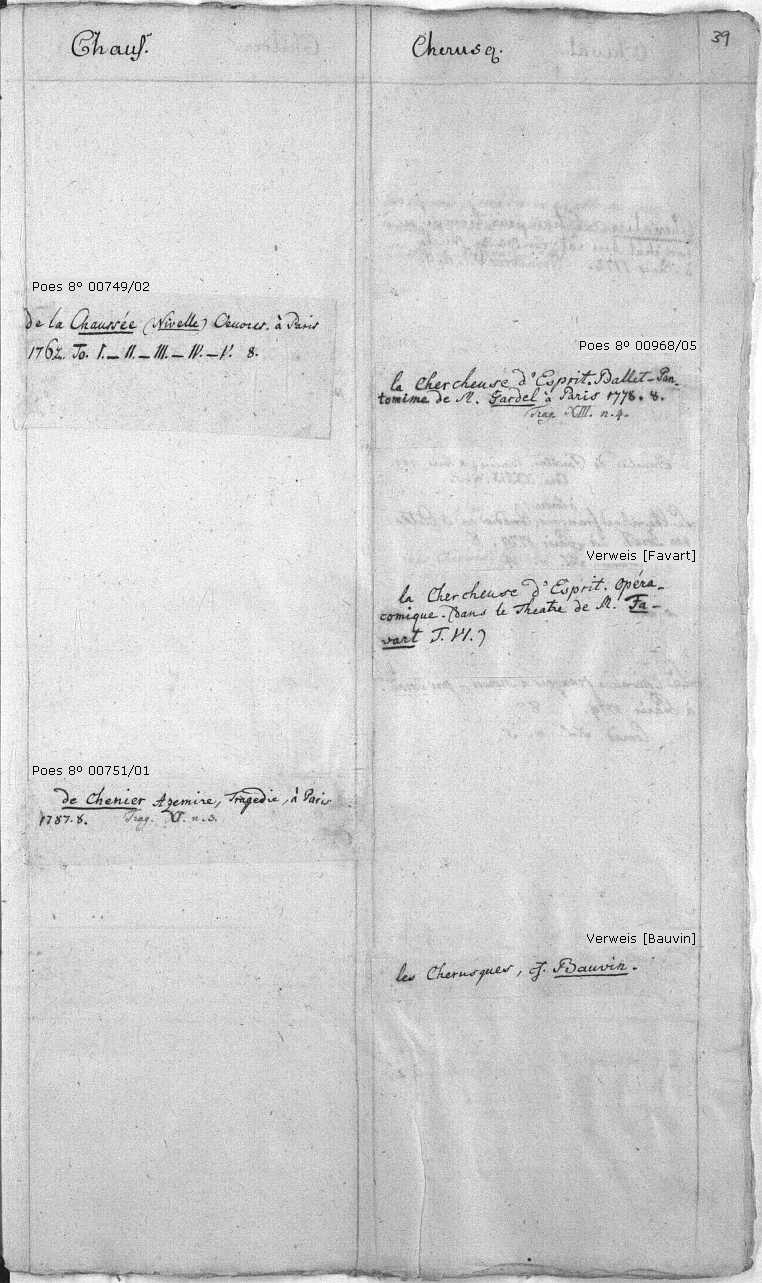 Chaus.
Cherusq.
39
Poes 8º 00749/02
de la Chaussée (Nivelle) Oeuvres. à Paris
1762. To. I._ II._ III._ IV._ V. 8.
Poes 8º 00751/01
de Chenier Azemire, Tragedie, à Paris
1787. 8. Trag. XI. n. 3.
Poes 8º 00968/05
la Chercheuse d'Esprit. Ballet-Pan-
tomime de M. Gardel à Paris 1778. 8.
Trag. XIII. n. 4.
Verweis [Favart]
la Chercheuse d'Esprit. Opéra-
comique. (Dans le Theatre de M. Fa-
vart T. VI.)
Verweis [Bauvin]
les Cherusques, cf. Bauvin.